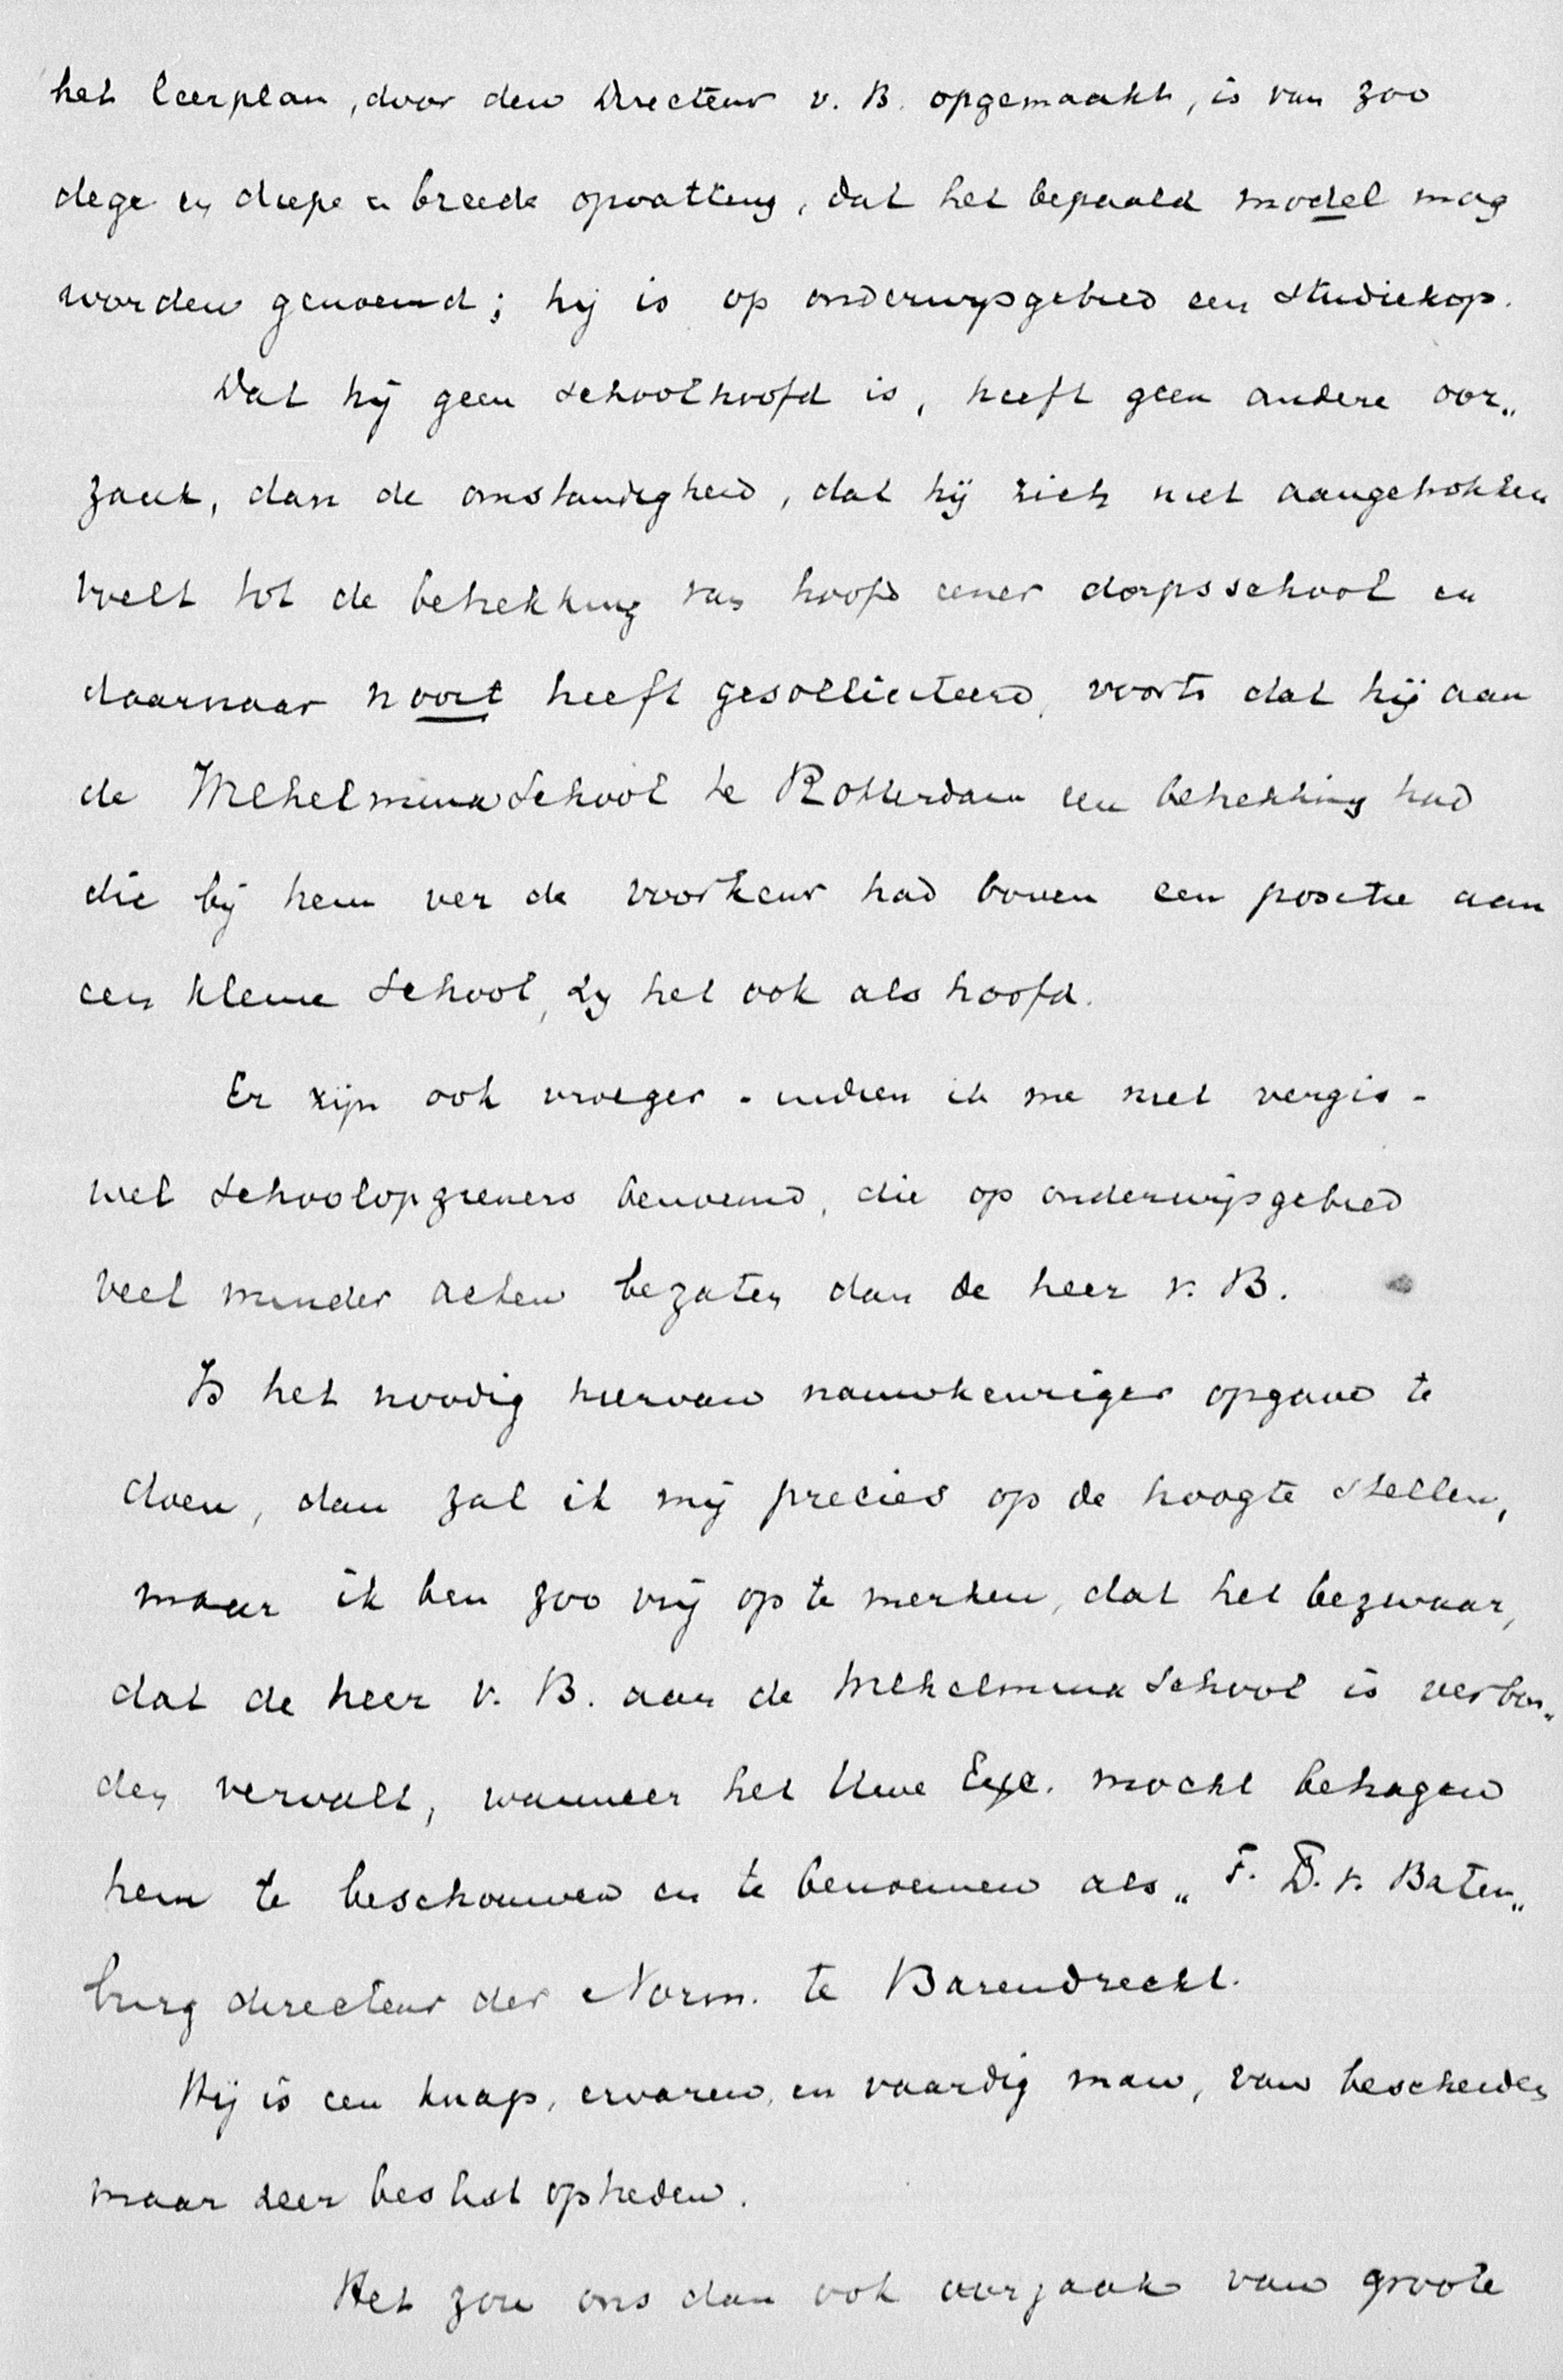 het leerplan, door den Directeur v. B. opgemaakt, is van zoo
dege en diepe en breede opvatting, dat het bepaald model mag
worden genoemd; hij is op onderwijsgebied een studiekop.
Dat hij geen schoolhoofd is, heeft geen andere oor„
zaak, dan de omstandigheid, dat hij zich niet aangetrokken
voelt tot de betrekking van hoofd eener dorpsschool en
daarnaar nooit heeft gesolliciteerd, voorts dat hij aan
de Wilhelminaschool te Rotterdam een betrekking had
die bij hem ver de voorkeur had boven een positie aan
een kleine school, zij het ook als hoofd.
Er zijn ook vroeger - indien ik me niet vergis -
wel schoolopzieners benoemd, die op onderwijsgebied
veel minder acten bezaten dan de heer v. B.
Is het noodig hiervan nauwkeuriger opgave te
doen, dan zal ik mij precies op de hoogte stellen,
maar ik ben zoo vrij op te merken, dat het bezwaar,
dat de heer v. B. aan de Wilhelmina School is verbon„
den vervalt, wanneer het Uwe Exc. mocht behagen
hem te beschouwen en te benoemen als „F. D. v. Baten„
burg directeur der Norm. te Barendrecht.
Hij is een knap, ervaren, en vaardig man, van bescheiden
maar zeer beslist optreden.
Het zou ons dan ook oorzaak van groote